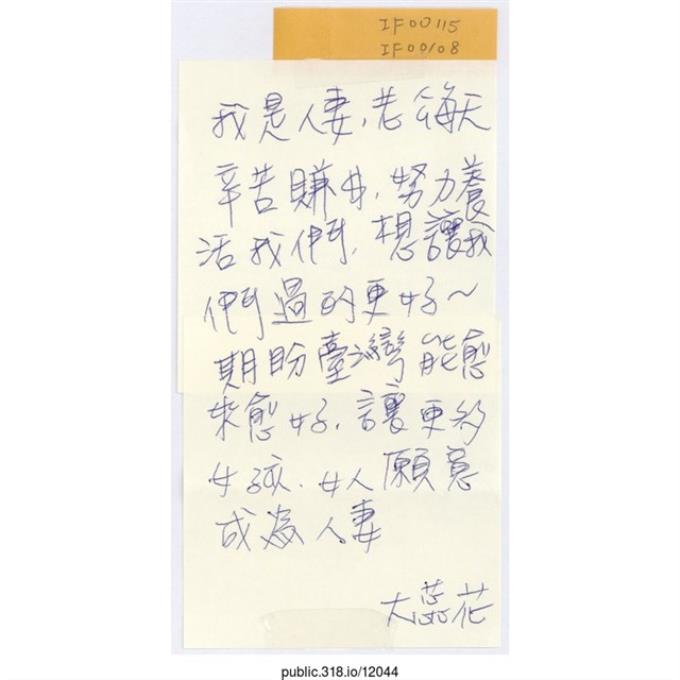 IF00115
IF00108
我是人妻,老公每天
辛苦賺錢,努力養
活我們,想讓我
們過的更好~
期盼臺灣能愈
來愈好,讓更多
女孩、女人願意
成為人妻
大蕊花
public.318.io/12044